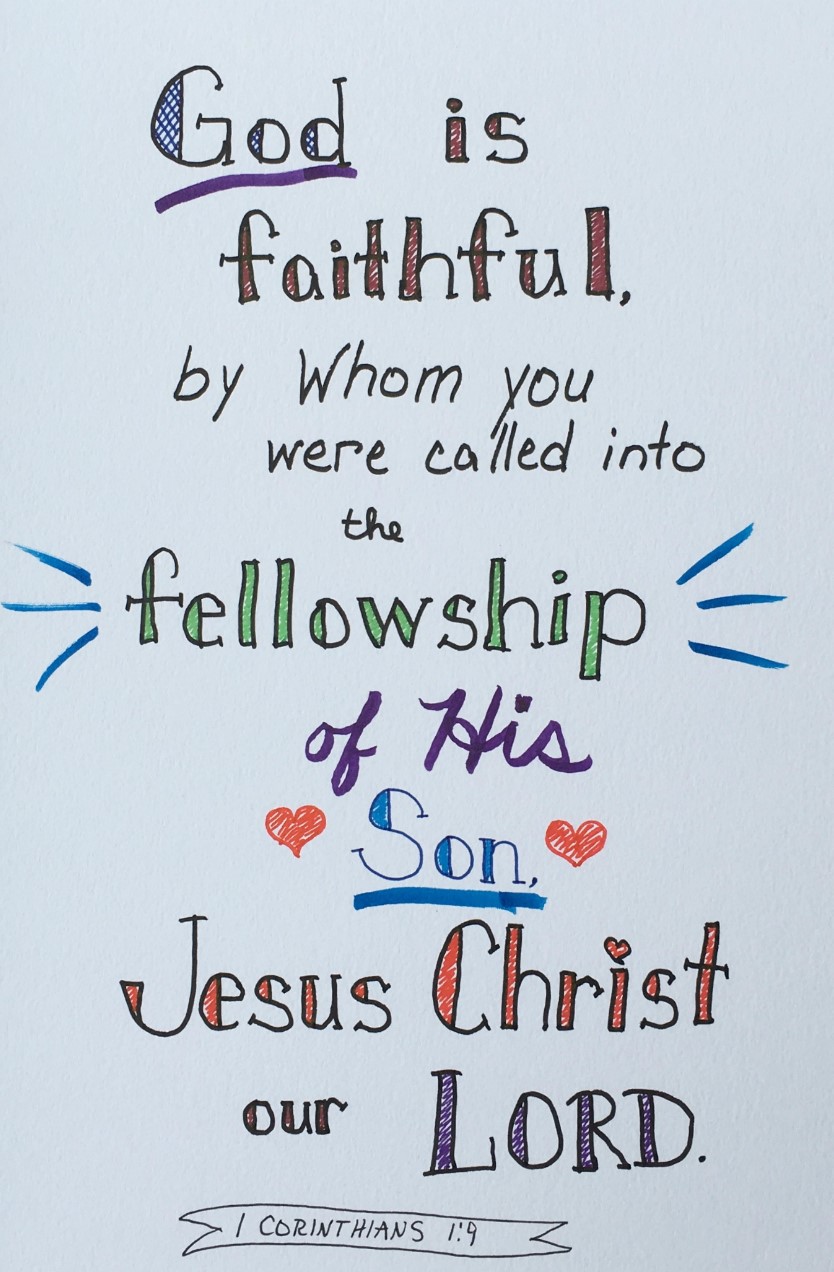 God is
faithful,
by Whom you
were called into
the
fellowship
of His
Son,
Jesus Christ
our LORD.
1 CORINTHIANS 1:9